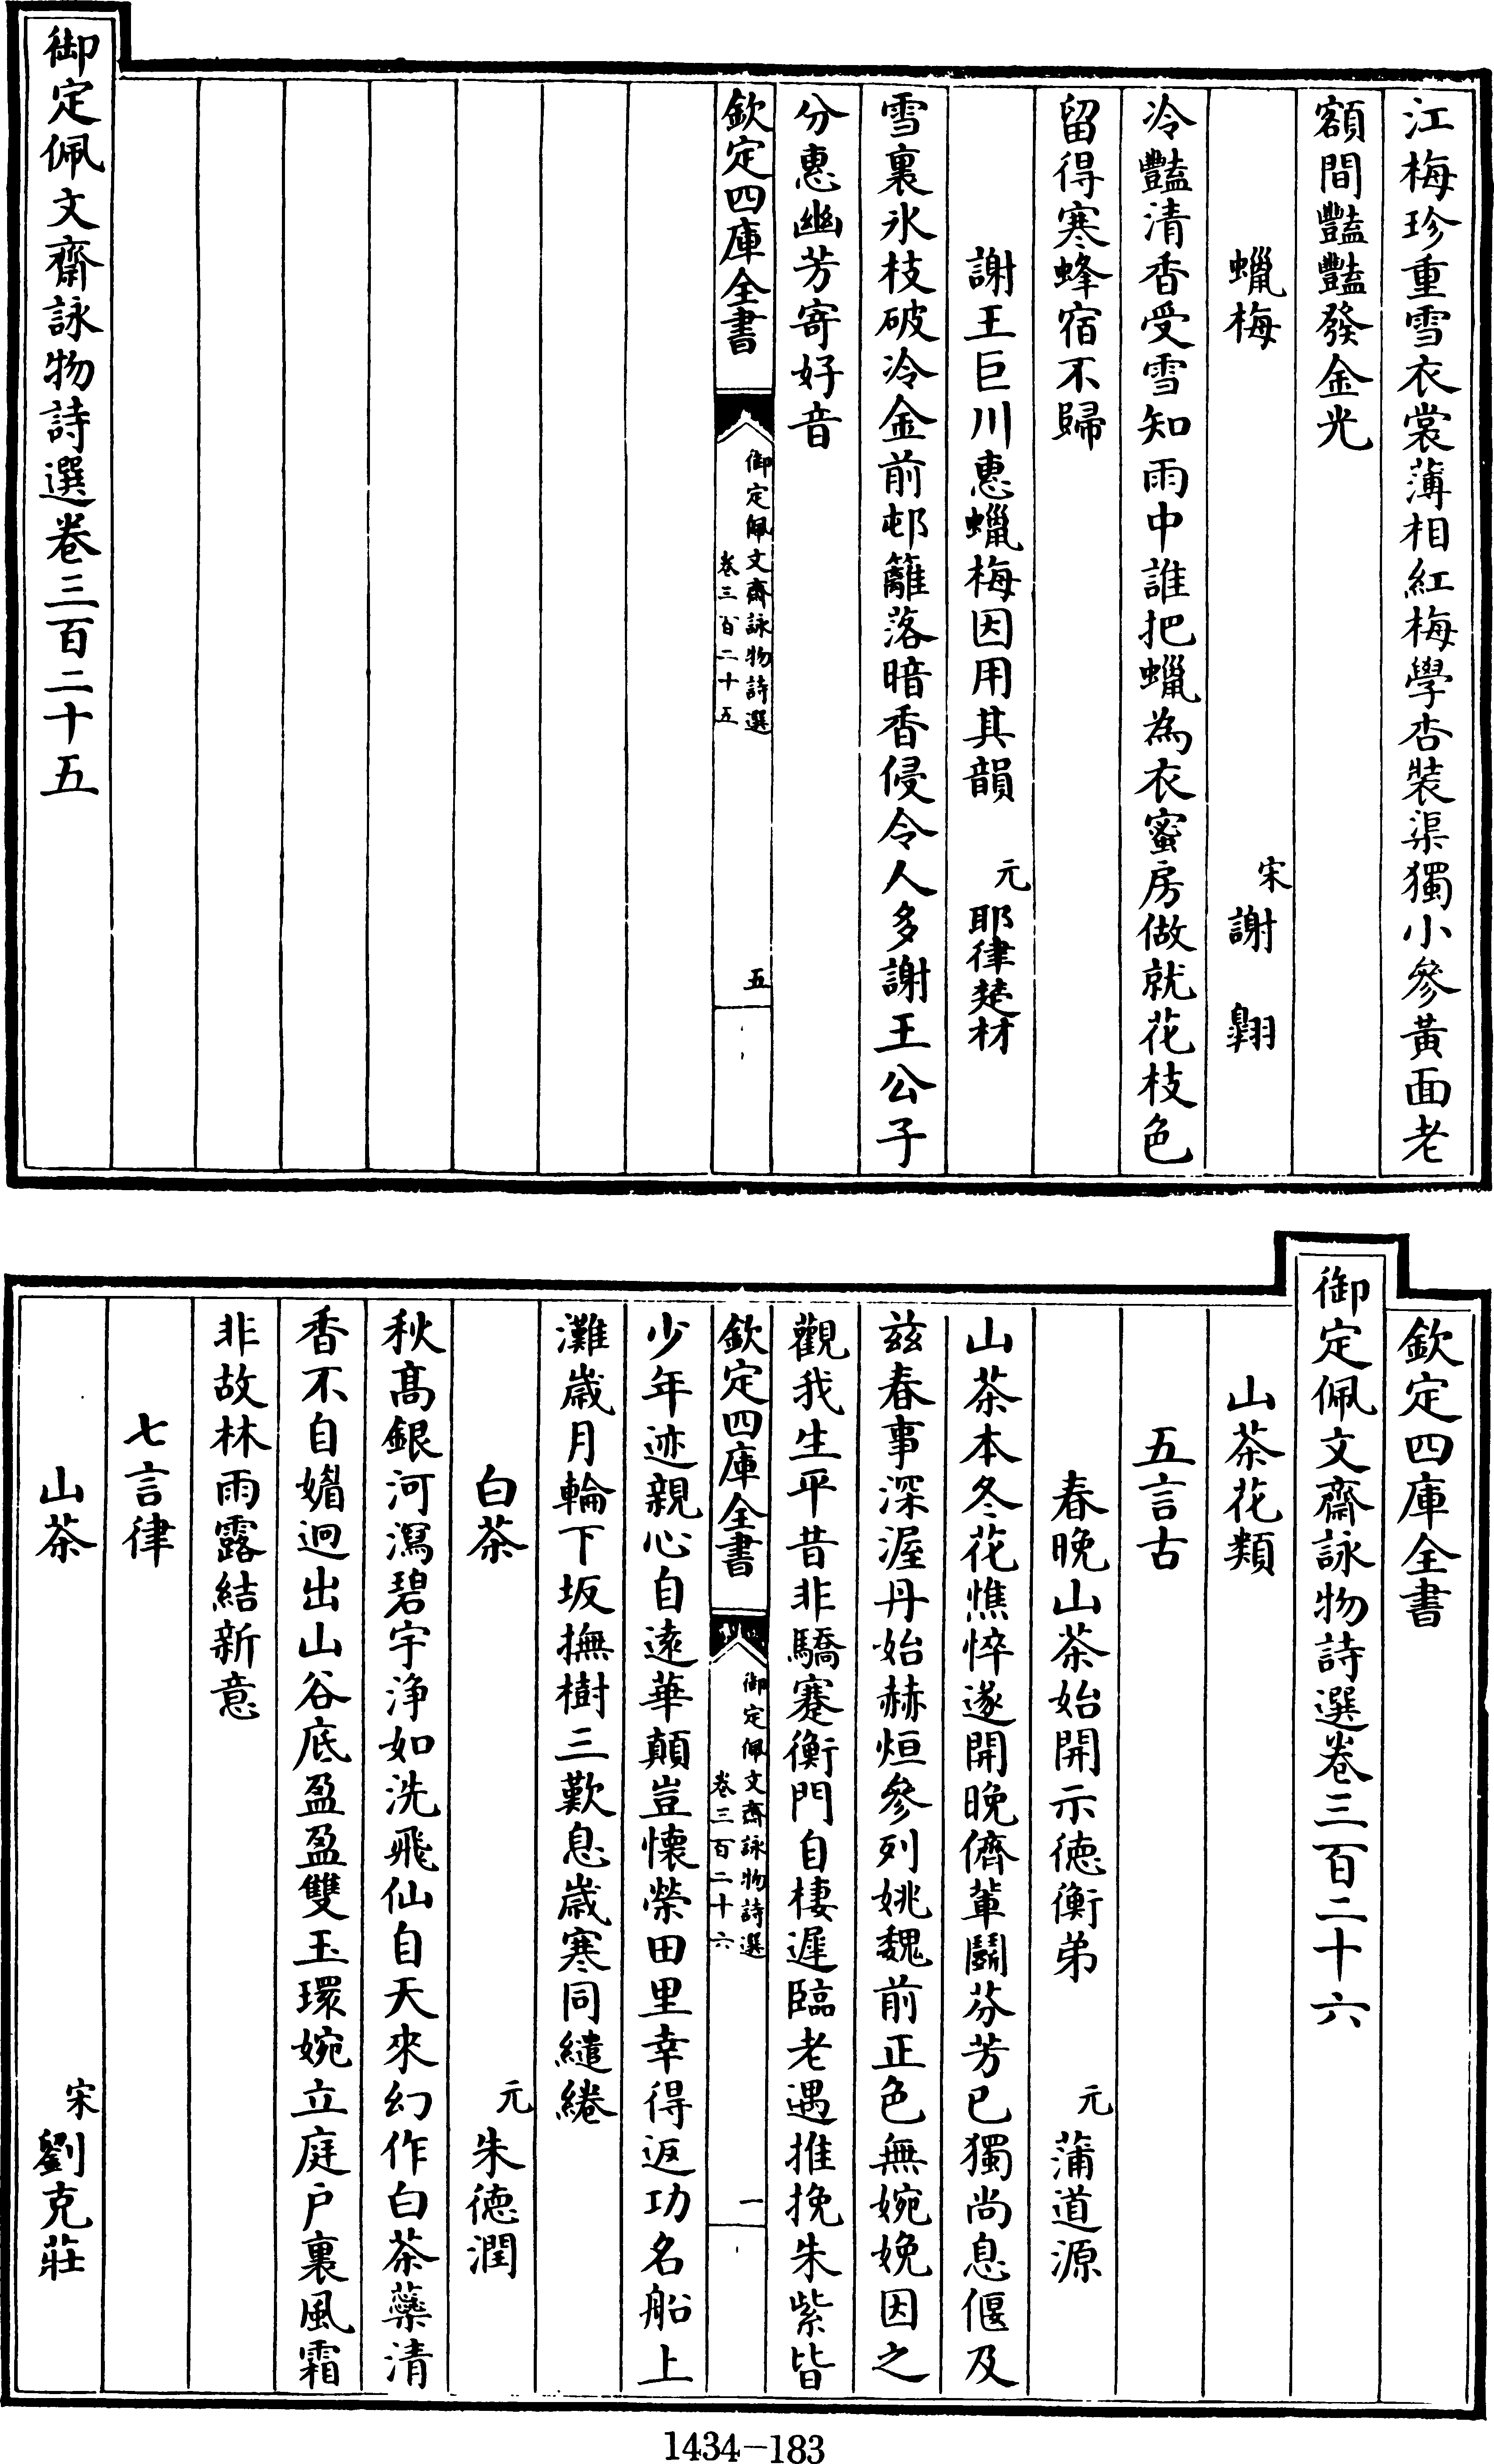 江梅珍重雪衣裳薄相紅梅學杏裝渠獨小參黃面老
額間豔豔發金光
蠟梅 宋 謝翱
冷豔清香受雪知雨中誰把蠟為衣蜜房做就花枝色
留得寒蜂宿不歸
謝王巨川惠蠟梅因用其韻 元 耶律楚材
雪裏氷枝破冷金前邨籬落暗香侵令人多謝王公子
分惠幽芳寄好音
欽定四庫全書 御定佩文齋詠物詩選 卷三百二十五 五
御定佩文齋詠物詩選卷三百二十五
欽定四庫全書
御定佩文齋詠物詩選卷三百二十六
山茶花類
五言古
春晚山茶始開示徳衡弟 元 蒲道源
山茶本冬花憔悴遂開晚儕輩鬭芬芳已獨尚息偃及
兹春事深渥丹始赫烜參列姚魏前正色無婉娩因之
觀我生平昔非驕蹇衡門自棲遲臨老遇推挽朱紫皆
欽定四庫全書 御定佩文齋詠物詩選 卷三百二十六 一
少年迹親心自遠華顛豈懷榮田里幸得返功名船上
灘歳月輪下坂撫樹三歎息歳寒同繾綣
白茶 元 朱徳潤
秋髙銀河瀉碧宇浄如洗飛仙自天來幻作白茶蘂清
香不自媚迥出山谷底盈盈雙玉環婉立庭户裏風霜
非故林雨露結新意
七言律
山茶 宋 劉克莊
1434-183